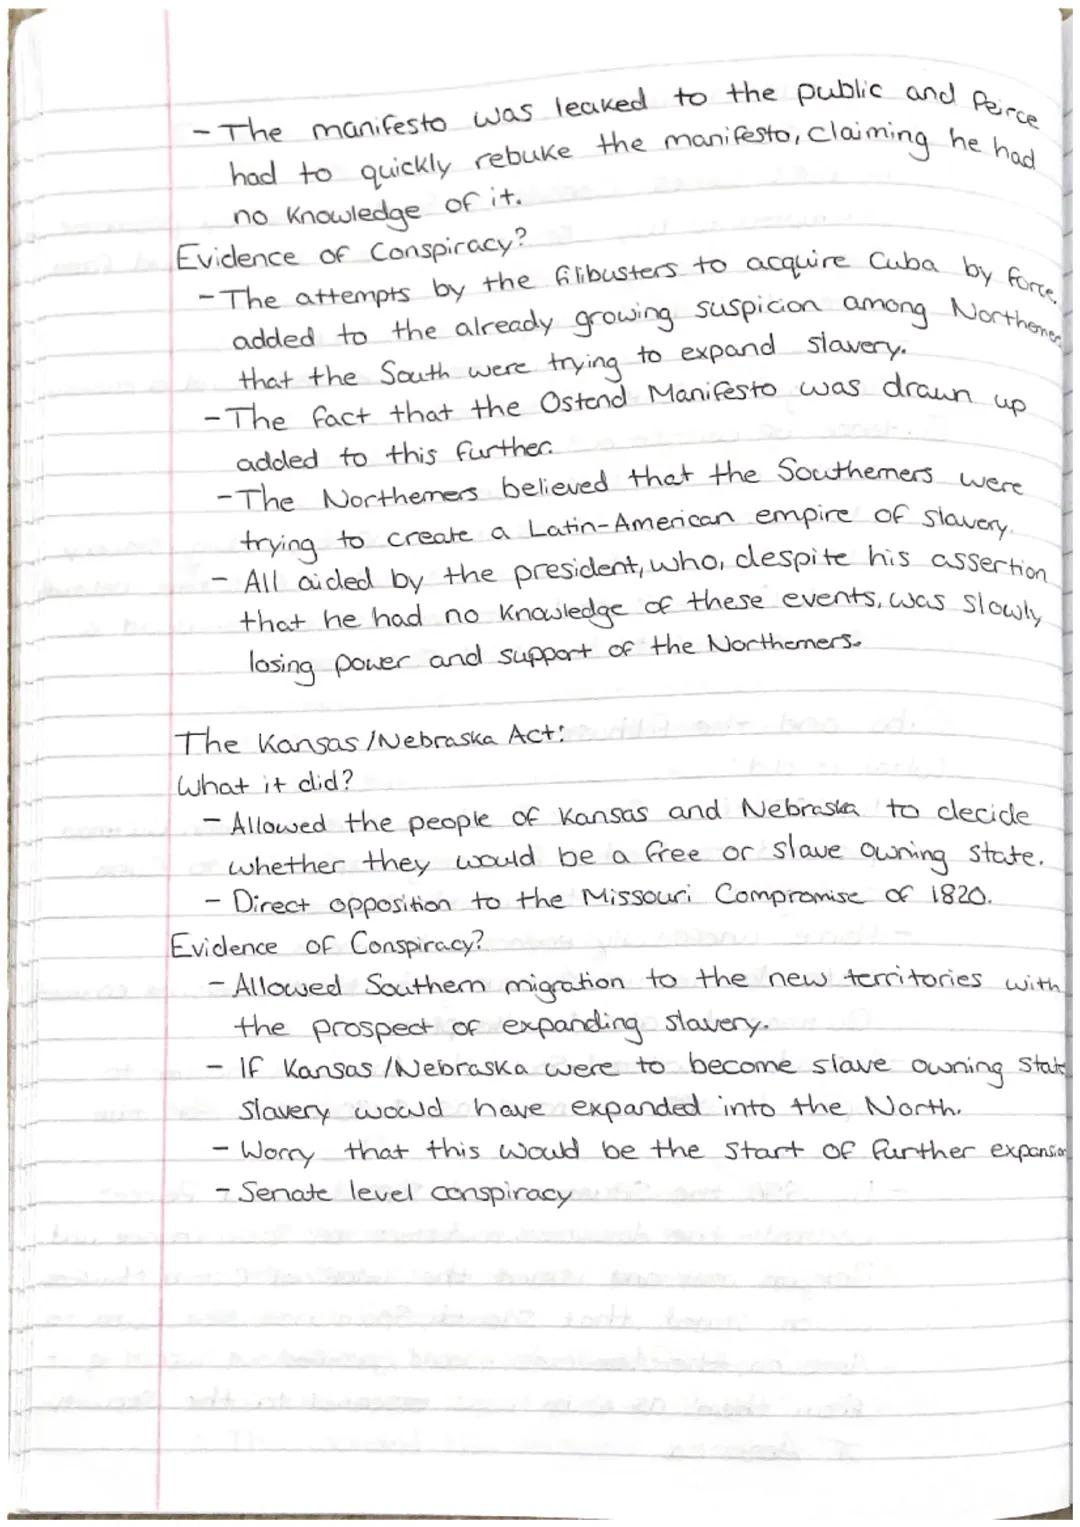 - The manifesto was leaked to the public and Peirce
had to quickly rebuke the manifesto, claiming he had
no knowledge of it.
Evidence of Conspiracy?
- The attempts by the filibusters to acquire Cuba by force,
added to the already growing suspicion among Northerners
that the South were trying to expand slavery.
- The fact that the Ostend Manifesto was drawn up
added to this further.
- The Northerners believed that the Southerners were
trying to create a Latin-American empire of slavery.
- All aided by the president, who, despite his assertion
that he had no knowledge of these events, was slowly
losing power and support of the Northerners.
The Kansas/Nebraska Act:
What it did?
- Allowed the people of Kansas and Nebraska to decide
whether they would be a free or slave owning state.
- Direct opposition to the Missouri Compromise of 1820.
Evidence of Conspiracy?
- Allowed Southern migration to the new territories with
the prospect of expanding slavery.
- If Kansas/Nebraska were to become slave owning state
slavery would have expanded into the North.
- Worry that this would be the start of further expansion
- Senate level conspiracy